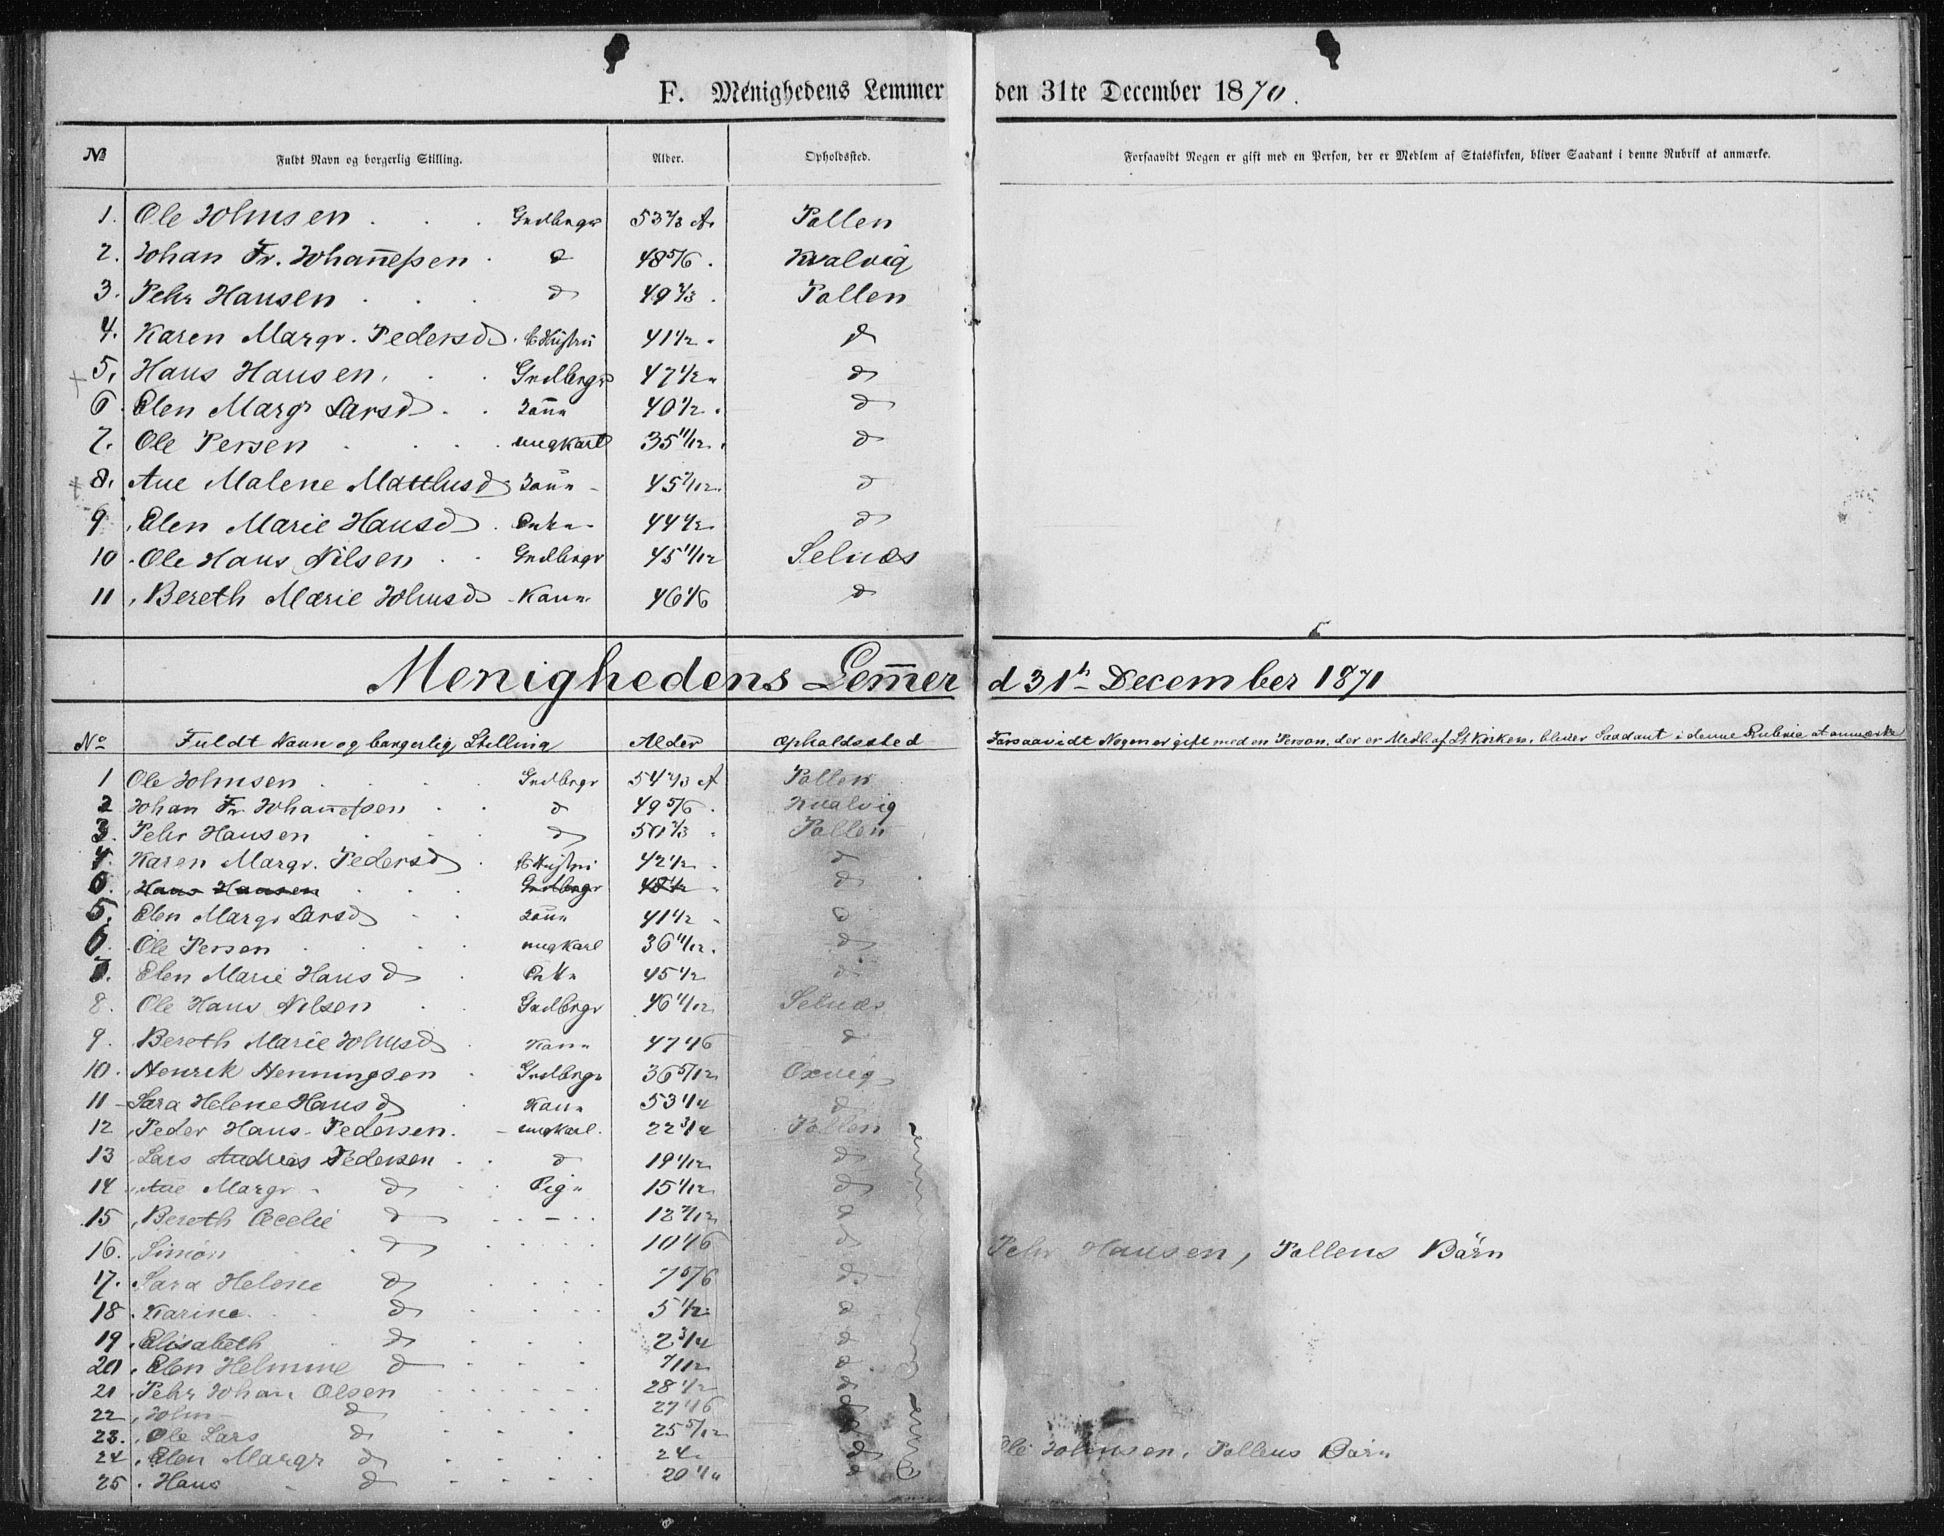 F. Menighedens Lemmer den 31te December 1870.
№ Fuldt Navn og borgerlig Stilling. Alder. Opholdssted. Forsaavidt Nogen er gift med en Person, der er Medlem af Statskirken, bliver Saadant i denne Rubrik at anmærke.
1. Ole Johnsen Grdbrgr 53 2/3 A. Pollen
2. Johan Fr. Johanneſsen d 48 5/6 Kvalvig
3. Pehr Hansen d 49 2/3 Pollen
4. Karen Margr. Pedersd 41 1/2 d
5. Hans Hansen Grdbrgr 47 1/2 d
6 Elen Margr Larsd 40 1/2 d
7. Ole Persen ungkarl 35 11/12 d
8. Ane Malene Mathusd d
9 Elen Marie Hansd Enke 44 1/2 d
10 Ole Hans Nilsen Grdbrgr 45 11/12 Selnæs
11 Bereth Marie Johnsd Kone 46 1/6 d
Menighedens Lem̄er d 31te December 1871
No Fuldt Navn og borgerlig Stilling Alder Opholdssted Forsaavidt Nogen er gift med en Person, der er Medl. af St. Kirken, bliver Saadant i denne Rubrik at anmærke
1 Ole Johnsen Grdbrgr 54 2/3 A Pollen
2 Johan Fr. Johanneſsen d 49 5/6 Kvalvig
3. Pehr Hansen d 50 2/3 Pollen
4. Karen Margr. Pedersd 42 1/2 d
Hans Hansen Grdbrgr 48 1/2 d
5. Elen Margr Larsd 41 1/2 d
6. Ole Persen ungkarl 36 11/12 d
7. Elen Marie Hansd Enke 45 1/2 d
8. Ole Hans Nilsen Grdbrgr 46 11/12 Selnæs
9. Bereth Marie Johnsd Kone 47 1/6 d
10. Henrik Henningsen Grdbrgr 36 5/12 Oxvig
11 Sara Helene Hansd Kone 53 1/4 d
12 Peder Hans Pedersen ungkarl. 22 3/4 Pollen
13 Lars Andreas Pedersen d 19 1/12 d
14 Ane Margr d Pige 15 1/12 d
15 Bereth Cecelie d 12 7/12 d
16. Simon d 10 1/6 d Pehr Hansen, Pollens Börn
17. Sara Helene d 7 5/6 d
18 Karine d 5 1/2 d
19. Elisabeth d 2 3/4 d
20. Elen Helmine d 7/12 d
21 Pehr Johan Olsen 28 1/2 d
22 John d 27 1/6 d
23. Ole Lars d 25 5/12 d
24 Elen Margr d 24 d Ole Johnsen, Pollens Börn
25 Hans d 20 1/4 d